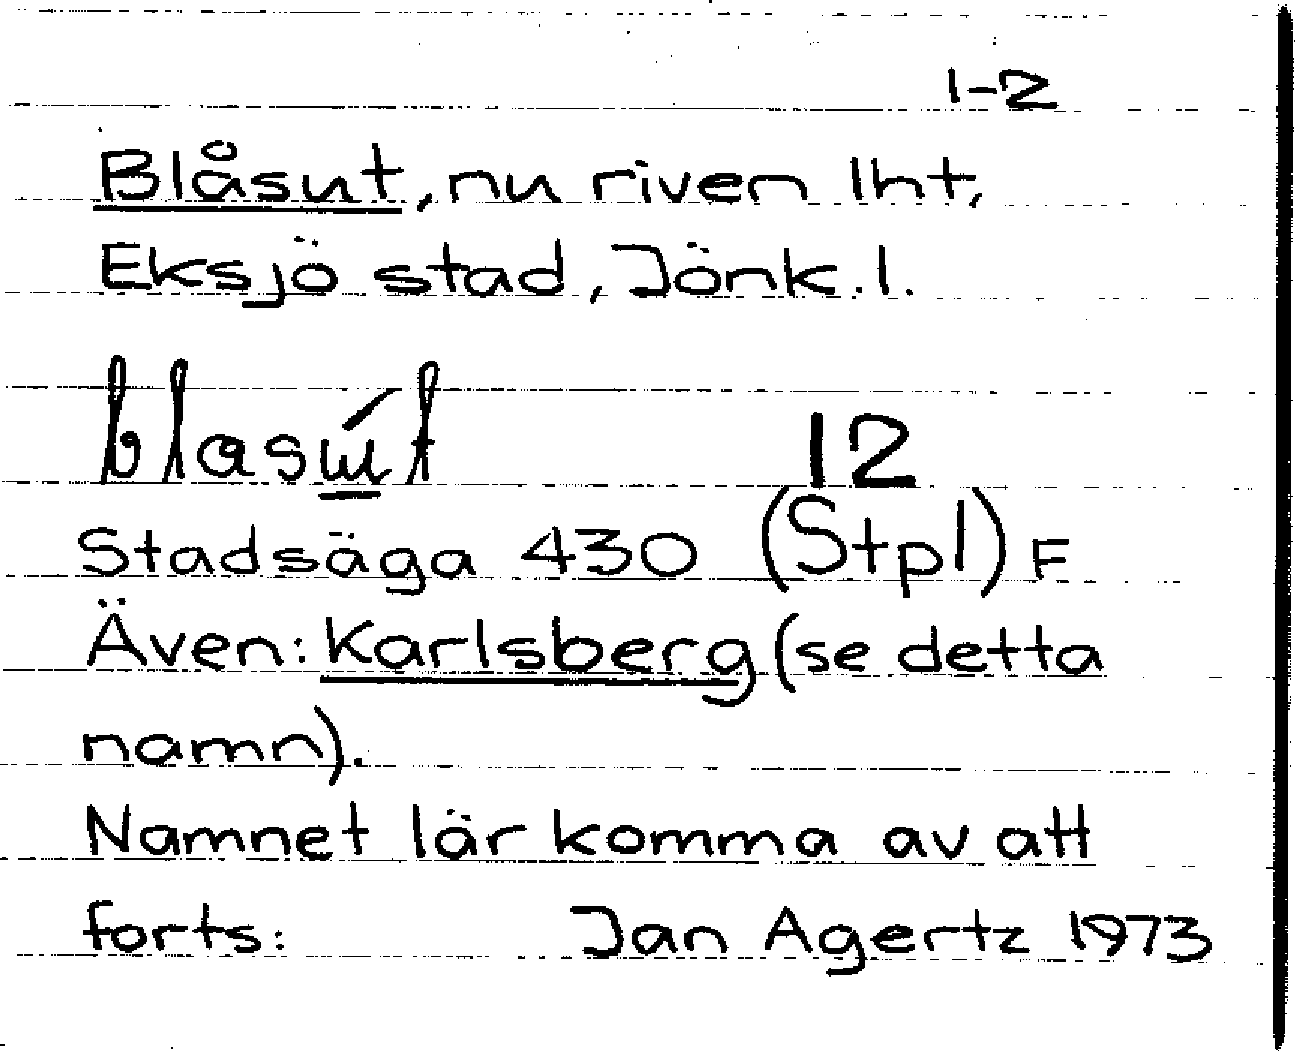 1-2
Blåsut, nu riven lht,
Eksjö stad, Jönk. l.
12
Stadsäga 430 (Stpl) F
Även: Karlsberg (se detta
namn).
Namnet lär komma av att
forts: Jan Agertz 1973